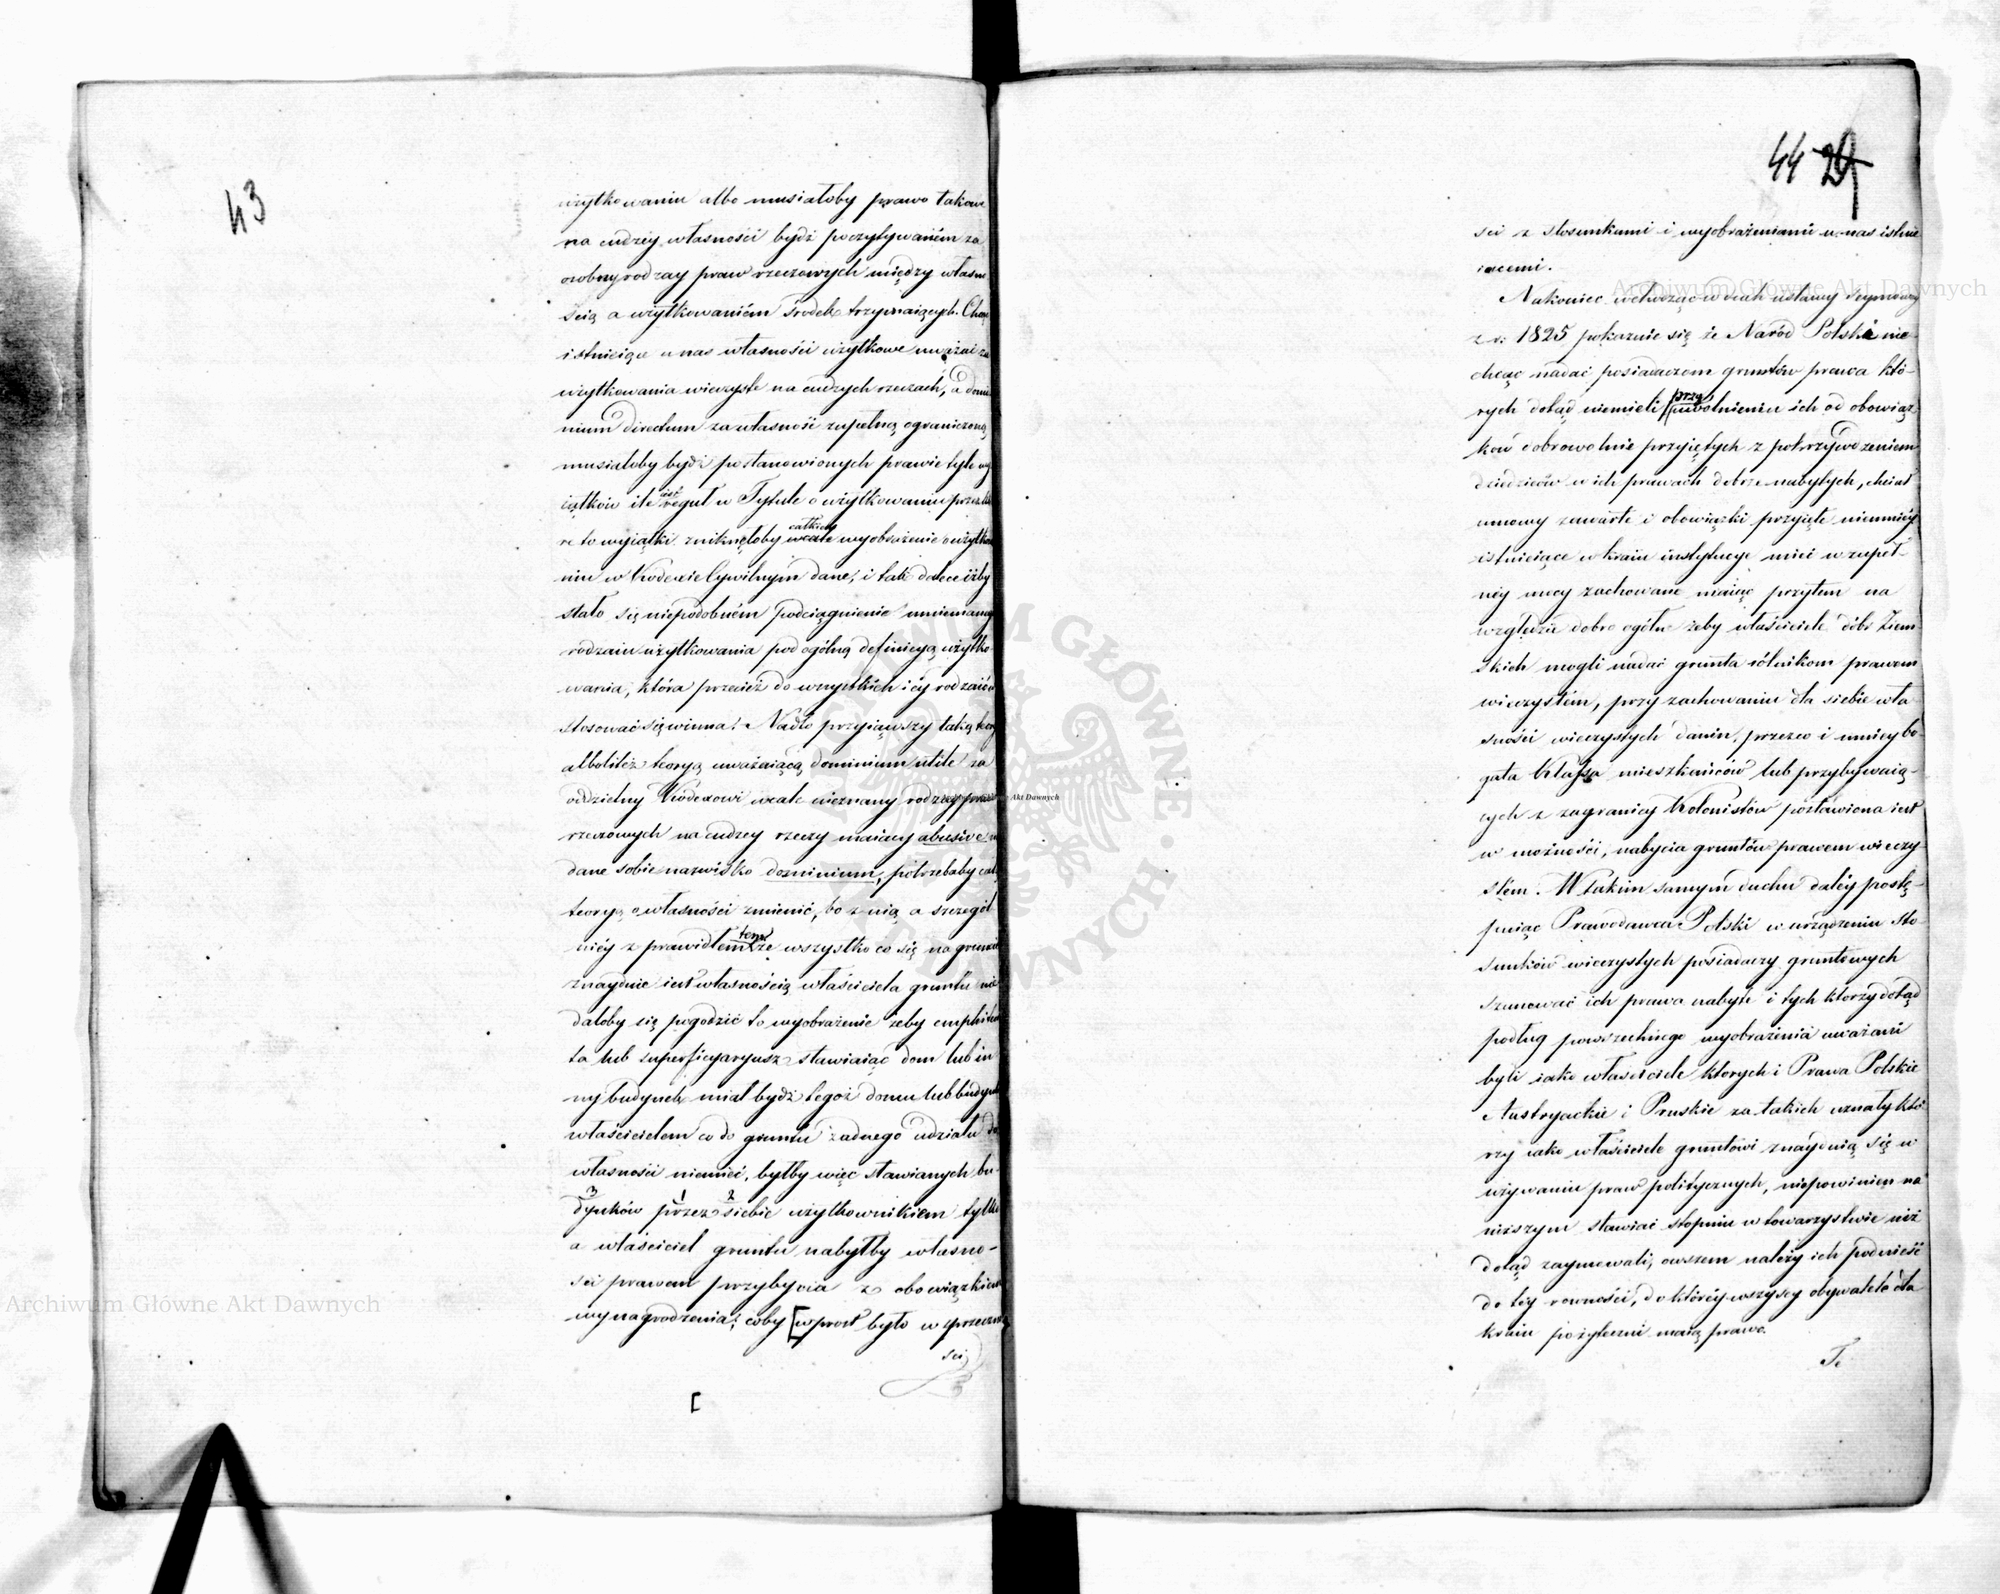 43
użytkowaniu albo musiałoby prawo takowe
na cudzey własności bydź poczytywaném za
osobny rodzay praw rzeczowych między własno
ścią a użytkowaniém środek trzymaiących. Chcąc
istnieiące u nas własności użytkowe uważać za
użytkowania wieczyste na cudzych rzeczach, a domi
nium directum za własność zupełną ograniczoną,
musiałoby bydź postanowionych prawie tyle wy
iątków ile iest reguł w Tytule o użytkowaniu przez któ
re to wyiątki zniknęłoby całkiem wcale wyobrażenie o użytkowa
niu w Kodexie Cywilnym dane, i tak dalece iżby
stało się niepodobném podciągnienie mniemanego
rodzaiu użytkowania pod ogólną definicyą użytko
wania, która przecież do wszystkich iéy rodzaiów
stosować się winna. Nadto przyiąwszy taką teoryą
albo też teoryą uważaiącą dominium utile za
oddzielny Kodexowi wcale nieznany rodzay praw
rzeczowych na cudzey rzeczy maiący abusive na
dane sobie nazwisko dominium, potrzebaby całą
teoryą o własności zmienić, bo z nią a szczegól
niéy z prawidłem tem że wszystko co się na gruncie
znayduie iest własnością właściciela gruntu nie
dałoby się pogodzić to wyobrażenie żeby emphiteu
ta lub superficyaryusz stawiaiąc dom lub in
ny budynek miał bydź tegoż domu lub budynku
właścicielem co do gruntu żadnego udziału do
własności niemieć, byłby więc stawianych bu-
3 1 2
dynków przez siebie użytkownikiem tylko
a właściciel gruntu nabyłby własno-
ści prawem przybycia z obowiązkiem
wynagrodzenia; coby [wprost było w sprzeczno
ści
[
44 29
ści z stosunkami i wyobrażeniami u nas istnie
iącemi.
Nakoniec wchodząc w duch ustawy Seymowey
z r. 1825 pokazuie się że Naród Polski nie-
chcąc nadać posiadaczom gruntów prawa któ-
rych dotąd niemieli przy uwolnieniu ich od obowiąz
ków dobrowolnie przyiętych z pokrzywdzeniem
dziedziców w ich prawach dobrze nabytych, chciał
umowy zawarte i obowiązki przyięte niemniéy
istnieiące w kraiu instytucye mieć w zupeł-
néy mocy zachowane maiąc przytem na
względzie dobro ogólne żeby właściciele dóbr Ziem
skich mogli nadać grunta rólnikom prawem
wieczystém, przy zachowaniu dla siebie wła
sności wieczystych danin, przezco i mniey bo-
gata klassa mieszkańców lub przybywaią-
cych z zagranicy Kolonistów postawiona iest
w możności, nabycia gruntów prawem wieczy-
stém. W takim samym duchu daléy postę-
puiąc Prawodawca Polski w urządzeniu sto-
sunków wieczystych posiadaczy gruntowych
szanować ich prawa nabyte i tych którzy dotąd
podług powszechnego wyobrażenia uważani
byli iako właściciele których i Prawa Polskie
Austryackie i Pruskie za takich uznały któ-
rzy iako właściciele gruntowi znayduią się w
używaniu praw politycznych, niepowinien na
niższym stawiać stopniu w towarzystwie niż
dotąd zaymowali, owszem należy ich podnieść
do téy równości, do któréy wszyscy obywatele dla
kraiu pożyteczni maią prawo.
Te